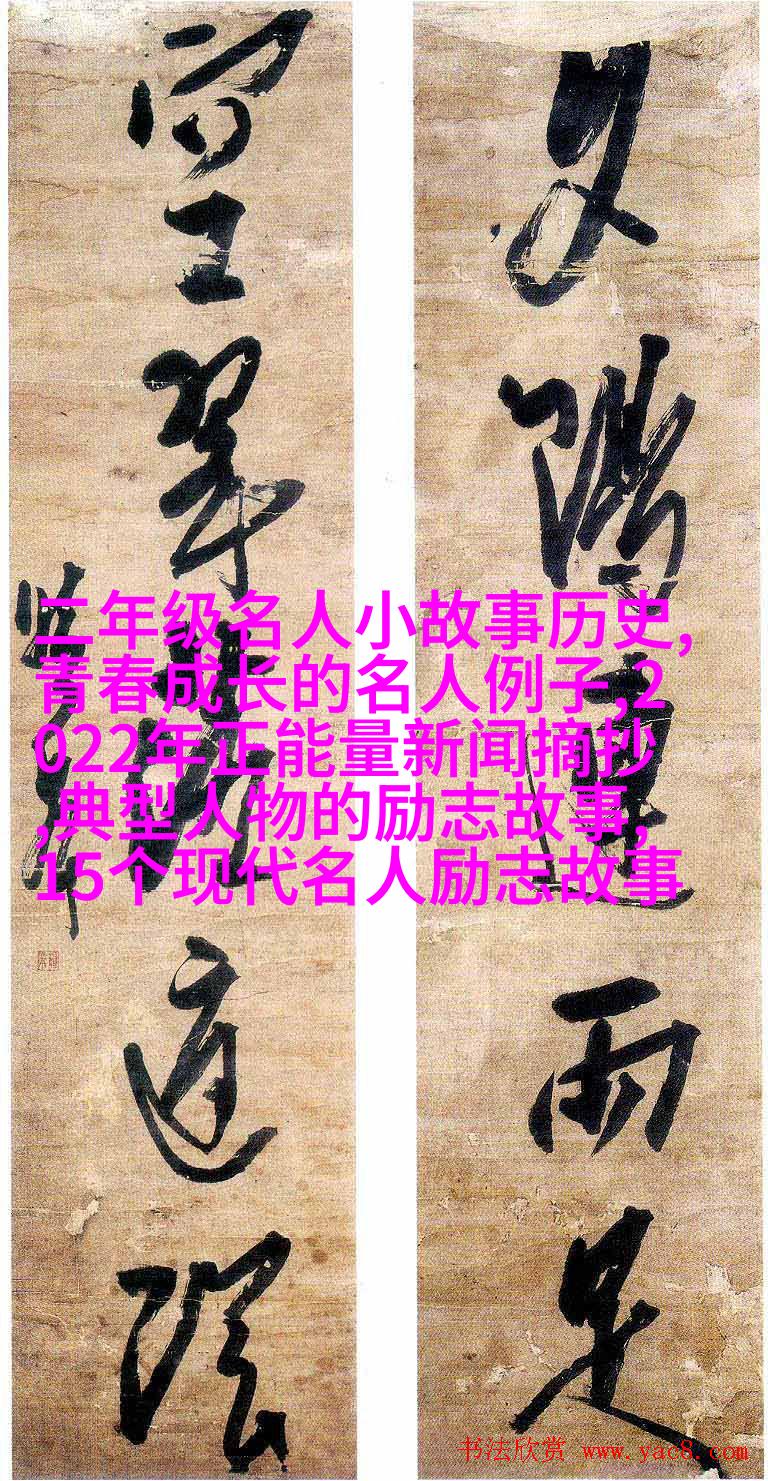 夕陽連雨足
空翠落庭陰
二年级名人小故事历史,
青春成长的名人例子,2
022年正能量新闻摘抄
,典型人物的励志故事,
15个现代名人励志故事
书法欣赏 www.yac8.com